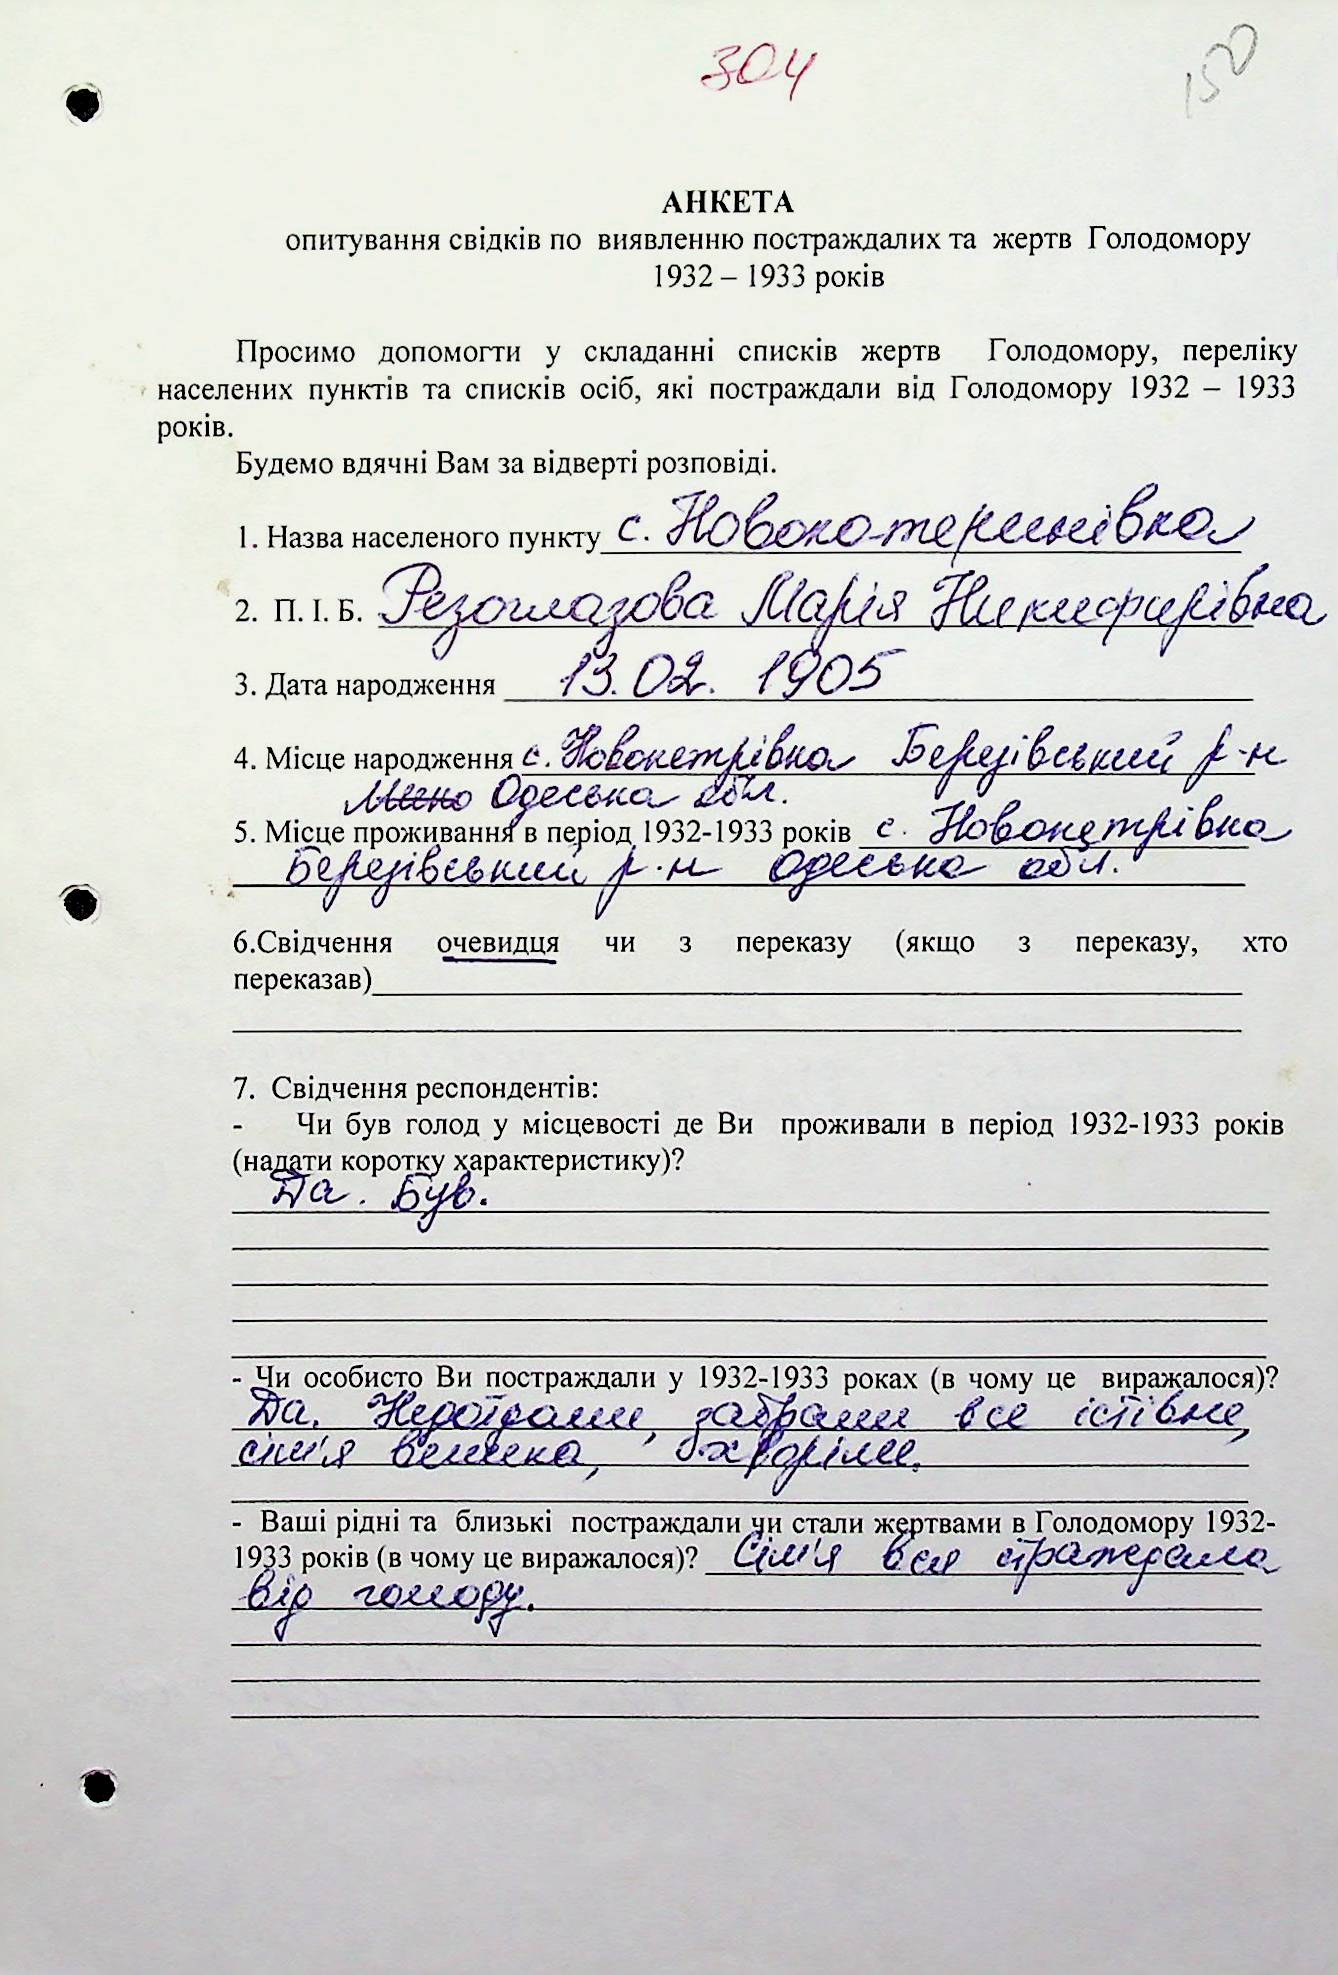 304
150
АНКЕТА
опитування свідків по виявленню постраждалих та жертв Голодомору
1932 – 1933 років
Просимо допомогти у складанні списків жертв Голодомору, переліку
населених пунктів та списків осіб, які постраждали від Голодомору 1932 – 1933
років.
Будемо вдячні Вам за відверті розповіді.
1. Назва населеного пункту с.
2. П. І. Б. Резоглазова Марія Никифирівна
3. Дата народження 13.02. 1905
4. Місце народження с. Новопетрівка Березівський р-н
Одеська обл.
5. Місце проживання в період 1932-1933 років с. Новопетрівка
Березівський р-н Одеська обл.
6.Свідчення очевидця чи з переказу (якщо з переказу, хто
переказав)
7. Свідчення респондентів:
- Чи був голод у місцевості де Ви проживали в період 1932-1933 років
(надати коротку характеристику)?
Да. Був.
- Чи особисто Ви постраждали у 1932-1933 роках (в чому це виражалося)?
Да. Недоїдали, забрали все істівне,
сім'я велика, хворіли.
- Ваші рідні та близькі постраждали чи стали жертвами в Голодомору 1932-
1933 років (в чому це виражалося)? Сім'я вся страждала
від голоду.